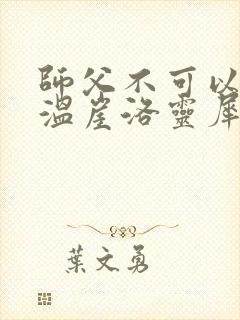 師父不可以
溫崖洛靈犀
葉文勇